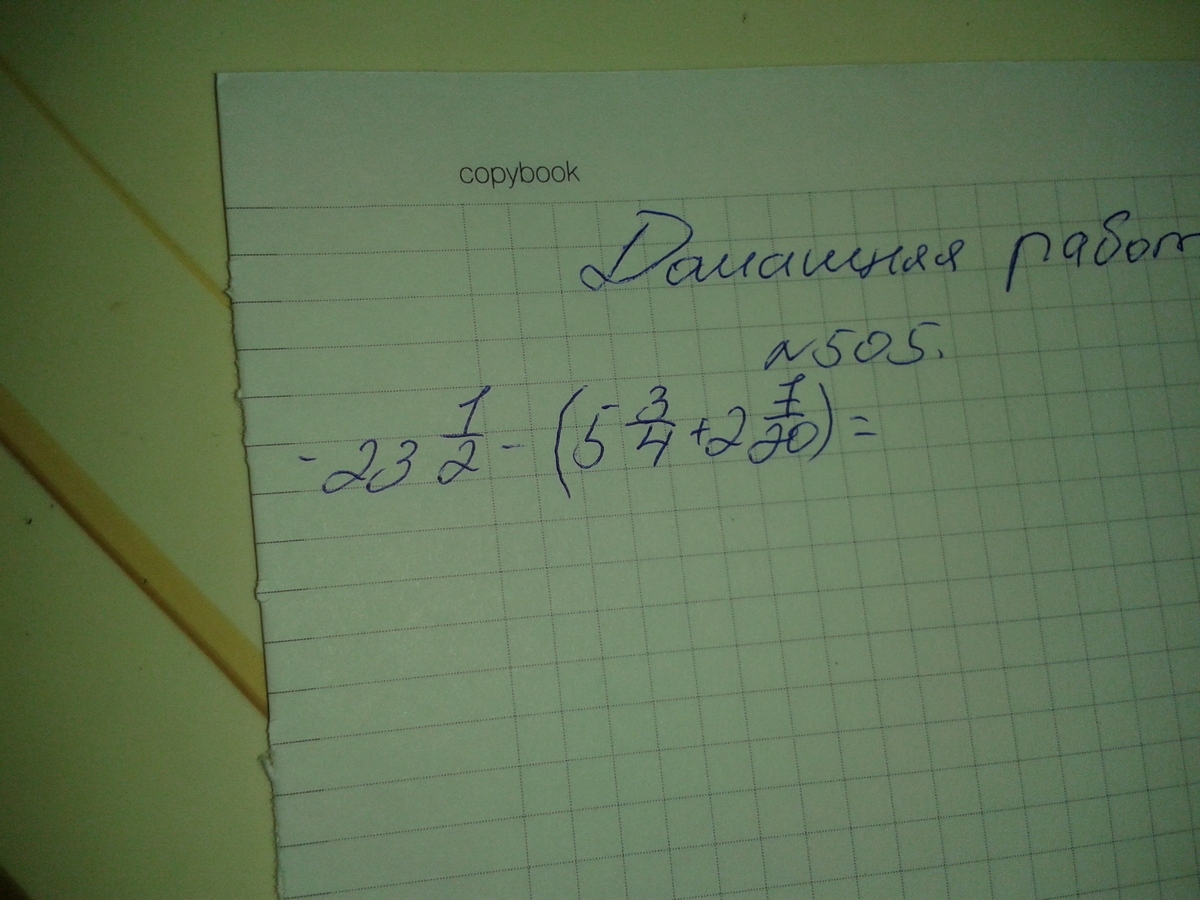 copybook
Домашняя работ
№505.
- 23 1/2 - (5 3/4 + 2 7/20) =